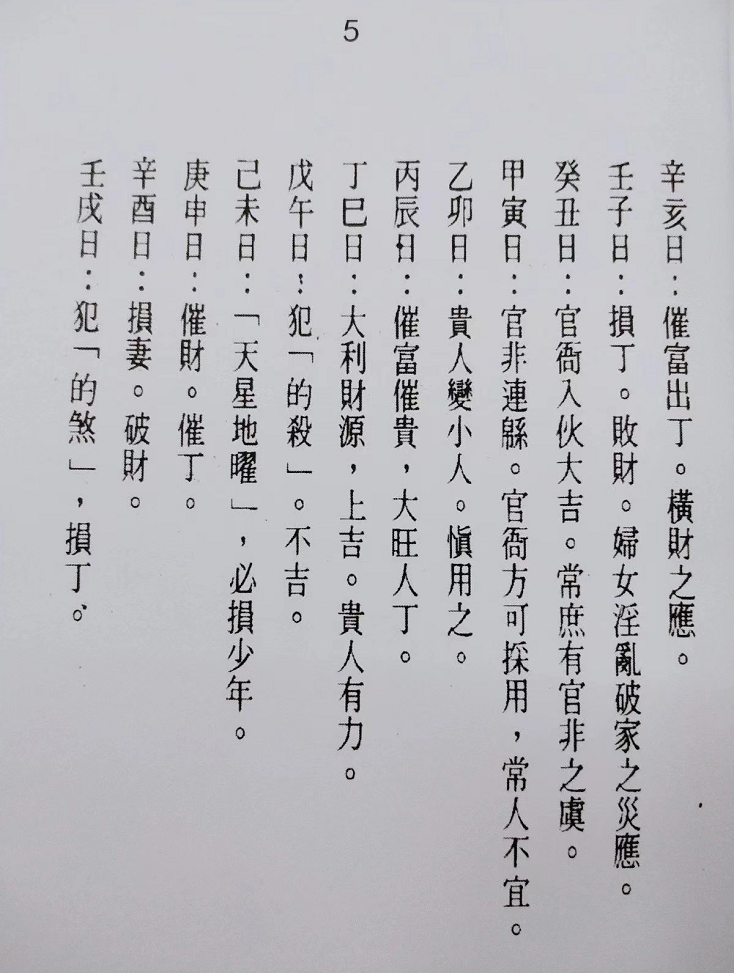 5
辛亥日：催富出丁。橫財之應。
壬子日：損丁。敗財。婦女淫亂破家之災應。
癸丑日：官衙入伙大吉。常庶有官非之虞。
甲寅日：官非連緜。官衙方可採用，常人不宜。
乙卯日：貴人變小人。慎用之。
丙辰日：催富催貴，大旺人丁。
丁巳日：大利財源，上吉。貴人有力。
戊午日：犯「的殺」。不吉。
己未日：「天星地曜」，必損少年。
庚申日：催財。催丁。
辛酉日：損妻。破財。
壬戌日：犯「的煞」，損丁。